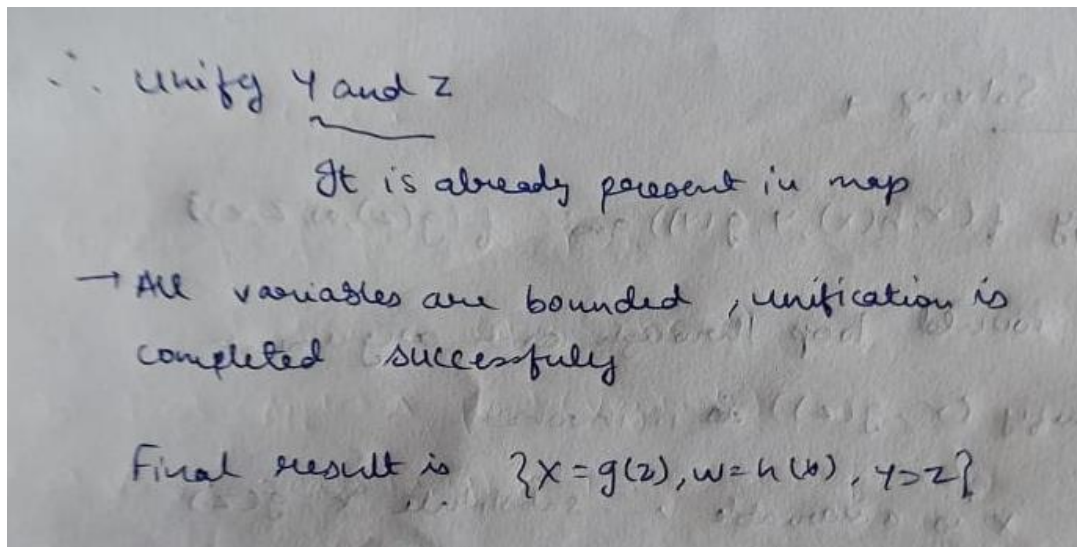 ∴ Unify Y and Z
It is already present in map
→ All variables are bounded, unification is
completed successfuly
Final result is {X=g(z), w=h(b), Y=z}